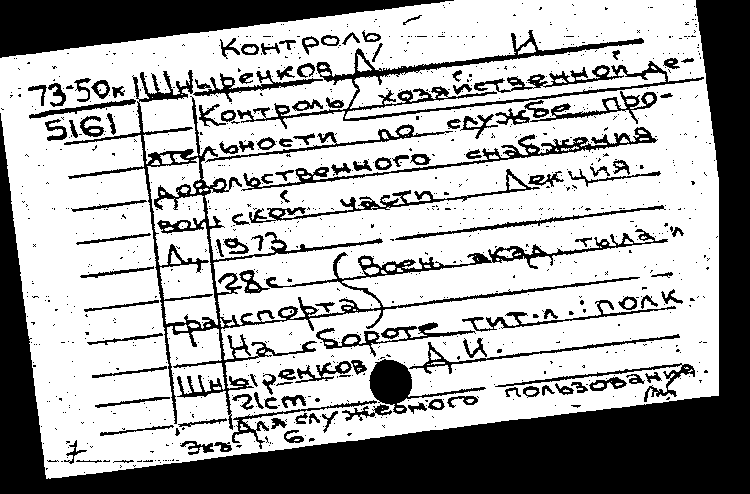 Контроль
73-50к Шныренков Д И
5161 Контроль хозяйственной де-
ятельности по службе про-
довольственного снабжения
воинской части. Лекция.
Л., 1973.
28с. (Воен. акад. тыла и
транспорта)
На обороте тит.л.: полк.
Шныренков Д.И.
21см.
Для служебного пользования.
7 Экз. 6.